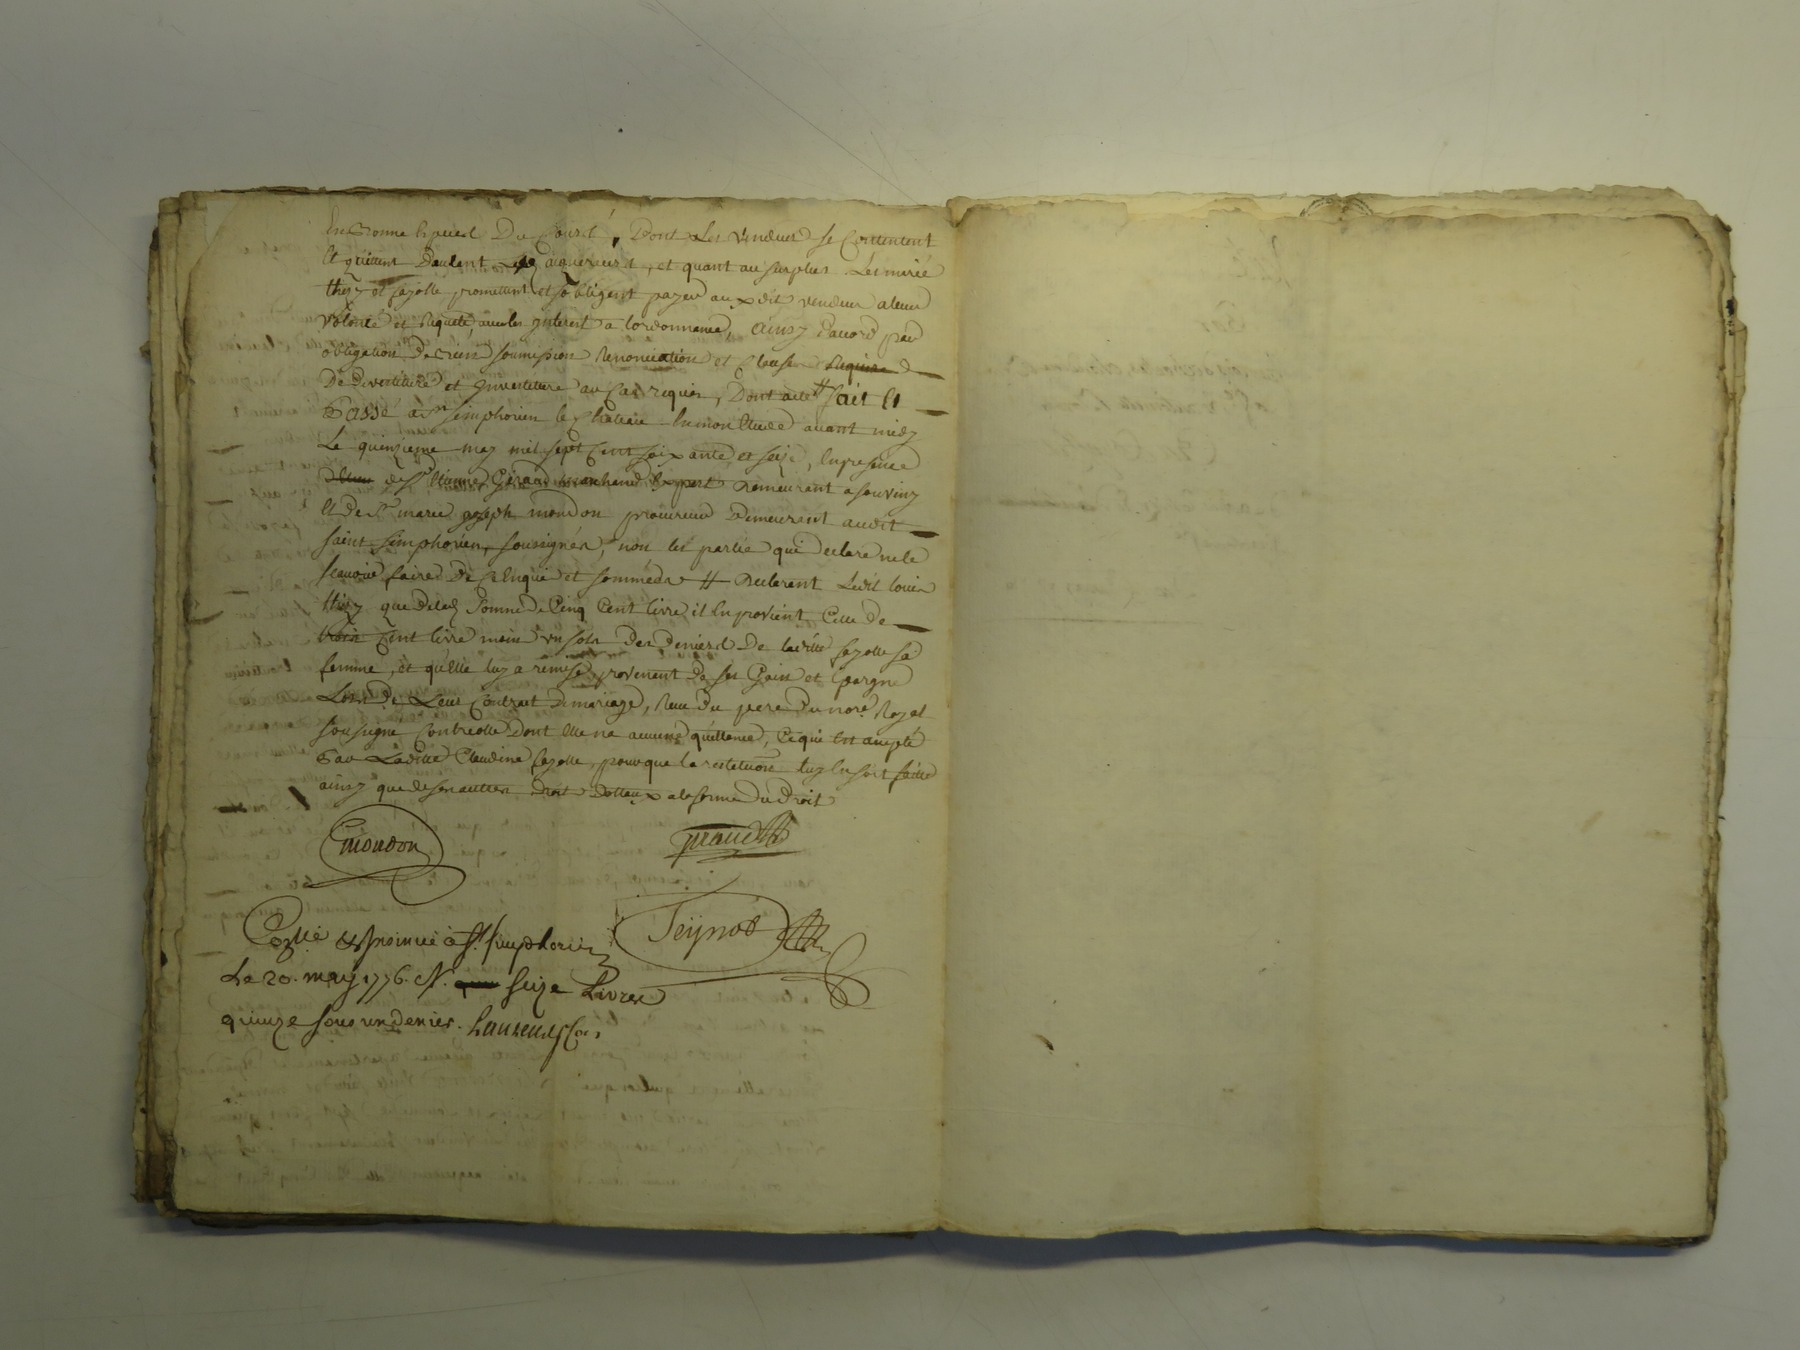 En bonne espece Du Cours, Dont Les vendeurs se Contentent
Et quittent D'autant Les acquereurs, et quant au surplus Les mariés
thizy et fayolle promettent et s'obligent payer auxdits vendeurs a leur
volonté et Requete, avec les interest a l'ordonnance, ainsy d'acord par
obligation De biens soumission Renonciation et Clauses
De Devestiture et Investiture au Cas requis, Dont acte # fait et
Passé a St Simphorien le Chateau En mon Etude avant midy
Le quinzieme may mil sept Cent soixante et seize, En presence
de Sr Etienne Girard marchand Expert Demeurant a souviny
Et de Sr marie joseph moudon procureur Demeurant audit
saint Simphorien, soussignés, non les partie qui declare ne le
scavoir faire De Ce Enquis et sommés # Declarent Ledit louis
thizy que de la somme De Cinq Cent livre il En provient Celle de
trois Cent livre moins un sols Des Deniers De ladite fayolle sa
femme, et qu'Elle luy a remise, provenant De ses Gains et Epargne
Lors De Leur Contrat De mariage, Receu Du pere Du noré Royal
soussigné Controllé Dont Elle n'a aucune quittance, Ce qui Est accepté
Par Laditte Claudine fayolle, pour que la restetuon luy En soit faitte
ainsy que de ses autres Droits Dottaux a la forme Du Droit
moudon
girard
Teynod
Coñlé & Insinué à St. Simphorien
Le 20. may 1776. R. seize Livres
quinze sous un denier. Laurend